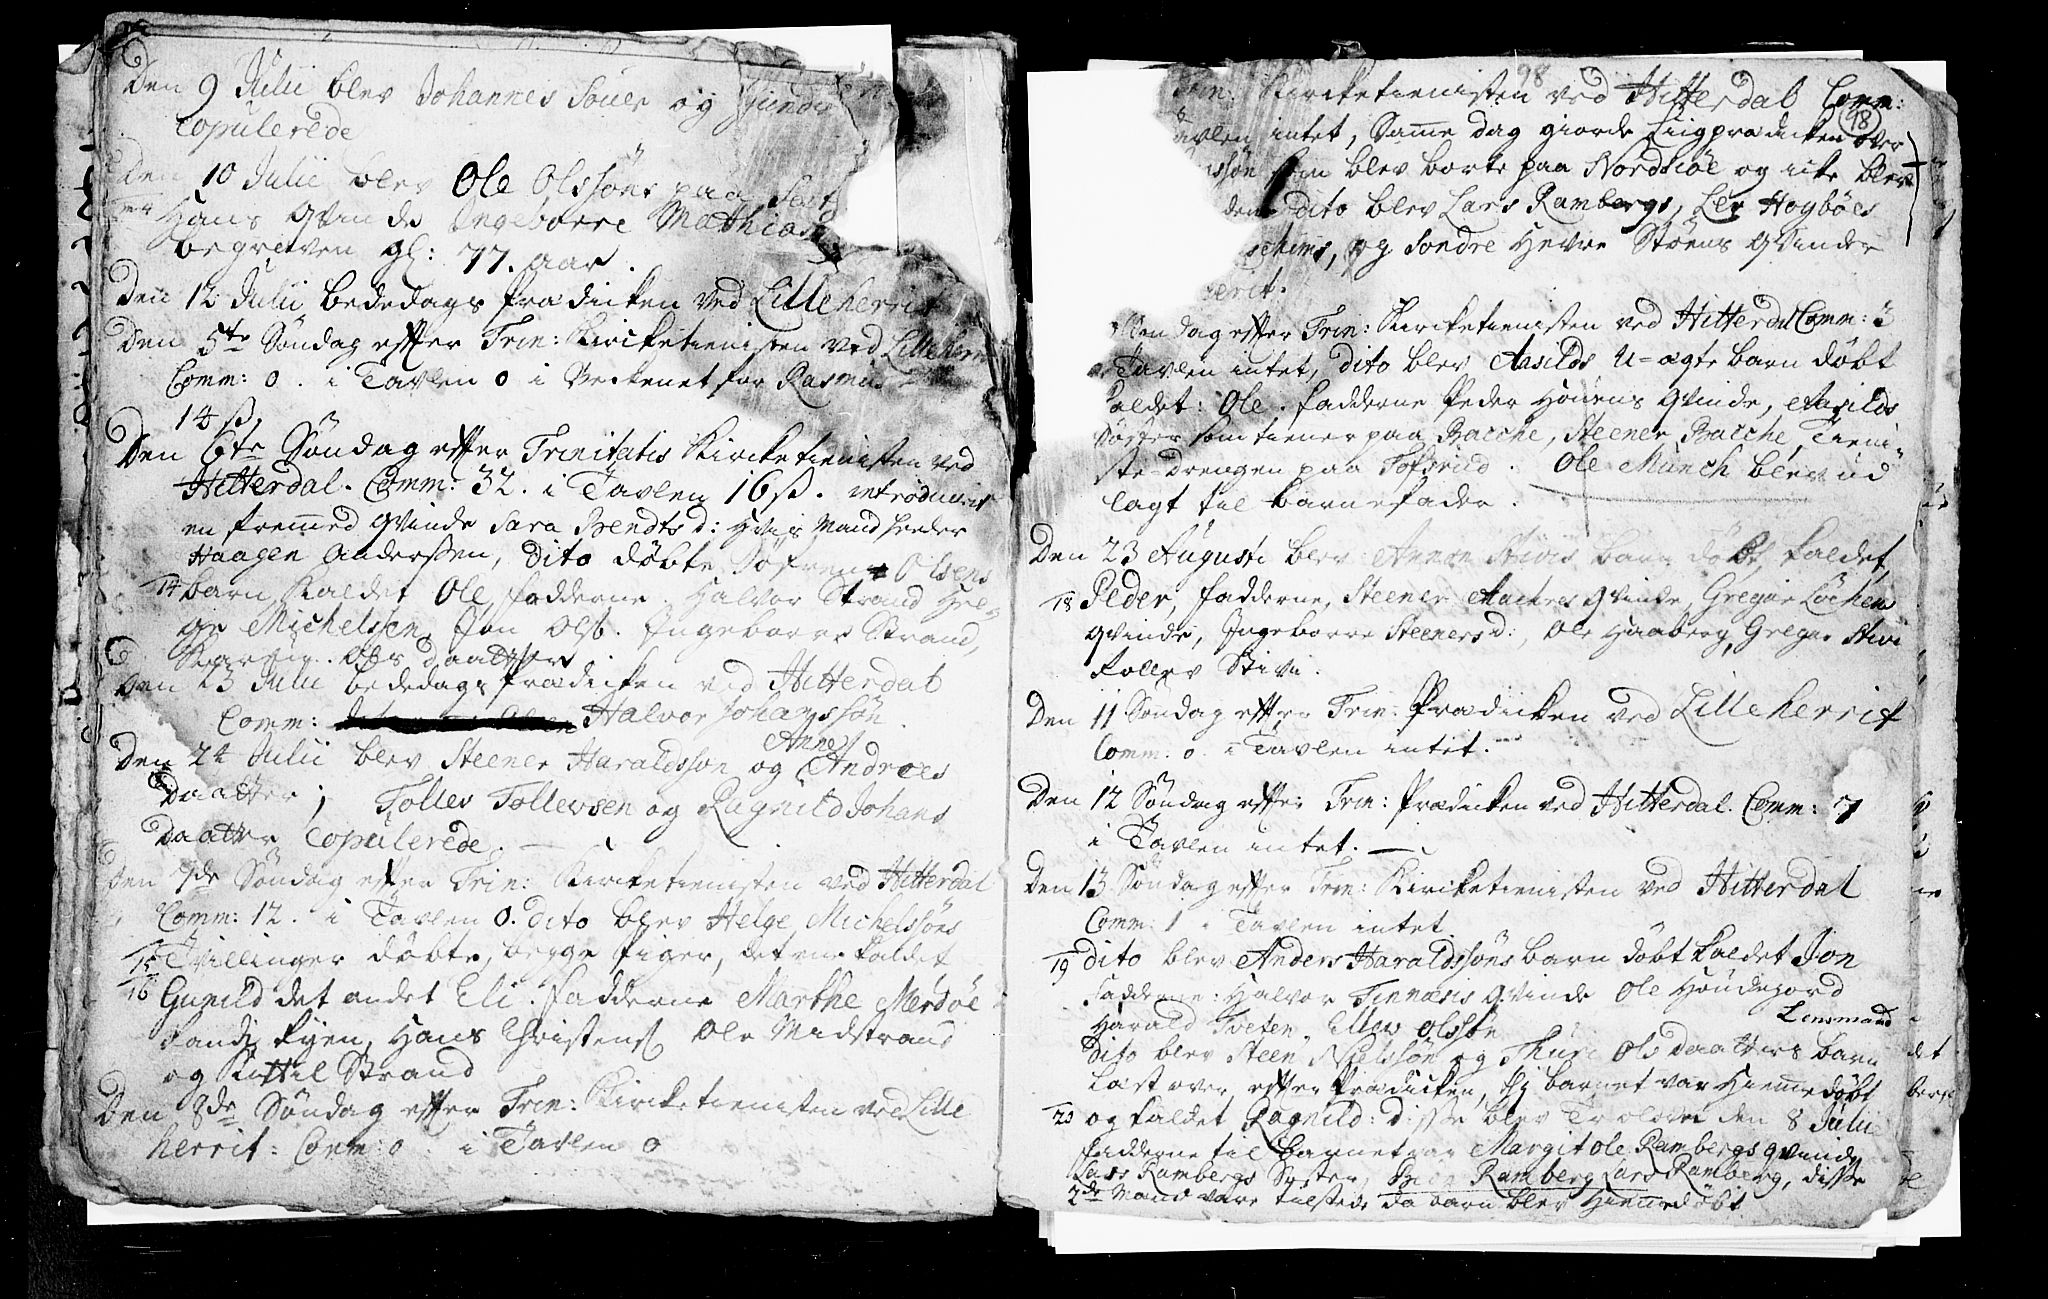 Den 9 Julii blev Johannes Sauer og Gunde
Copulerede
Den 10 Julii blev Ole Olssöns paa
Hans Qvinde Ingeborre Mathias
begraven gl: 77. aar.
Den 12 Julii bededags prædicken ved Lilleherrit
Den 5te Söndag effter Trin: Kircketienisten ved Lilleherr
Comm: 0. i Tavlen 0 i Beckenet for Rasmus
14 ß.
Den 6te Söndag effter Trinitatis Kircketienisten ved
Hitterdal. Comm: 32. i Tavlen 16 ß. introduceret
en fremmed qvinde Sara Bendts d: hvis Mand heeder
Haagen Anderssen, dito döbte Olsens
14 barn kaldet Ole, fadderne. Halvor Strand Hel-
ge Michelssen, Jon Olss. Ingeborre Strand,
Ols daatter
Den 13 Julii bededags Prædicken ved Hitterdal
Comm: Halvor Johanssön.
Anne
Den 24 Julii blev Steener Haraldsson og Andreæs
Daatter; Tollev Tollevsen og Ragnild Johans
daatter Copulerede.
Den 7de Söndag effter Trin: Kircketienisten ved Hitterdal
Comm: 12. i Tavlen 0. dito blev Helge Michelssöns
15 Tvillinger döbte, begge piger, det ene kaldet
16 Gunild det andet Eli. fadderne Marthe Merdöe
Hans Christens Ole Midstrand
og Kittil Strand
Den 8de Söndag effter Trin: Kircketienisten ved Lille
herrit: Comm: 0 i Tavlen 0
98
Trin: Kircketienisten ved Hitterdal Comm:
98
avlen intet, Samme dag giorde Liigprædicken over
ssön som blev borte paa Nordsiöe og icke blev
den dito blev Lars Rambergs, Lev Hoyböes
schims, og Sondre Hevre Stöens qvinder
cerit.
Söndag effter Trin: Kircketienisten ved Hitterdal Comm: 3
Tavlen intet, dito blev Aasilds u-ægte barn döbt
Kaldet: Ole. fadderne Peder Höuens qvinde, Aasilds
Söster som tiener paa Bacche, Steener Bacche, Tieni
ste-drengen paa Tofsrud. Ole Munch blev ud
lagt til barnefader.
Den 23 Augusti blev Annon Stivis barn döbt, kaldet,
18 Peder, fadderne, Steener qvinde, Gregar Löchens
qvinde, Ingeborre Steeners d:, Ole Haaberg, Gregar Stivi
Follev Stivi.
Den 11 Söndag effter Trin: Prædicken ved Lilleherrit
Comm: 0. i Tavlen intet.
Den 12 Söndag effter Trin: Prædicken ved Hitterdal. Comm: 7
i Tavlen intet.
Den 13 Söndag effter Trin: Kircketienisten ved Hitterdal
Comm: 1 i Tavlen intet.
19 dito blev Anders Haraldssöns barn döbt kaldet Jon
Fadderne: Halvor Tinnæsis Qvinde Ole Höudegord
Harald Tveten, Ellev Olssön
Lensmand
Dito blev Steen Nielssön og Thuri Ols daatters barn
læst over, effter Prædicken, thj barnet var hiemme döbt
20 og kaldet Ragnild: disse blev Trolovet den 8 Julii
fadderne til barnet var Margit Ole Rambergs qvinde
Lars Rambergs Syster, Ramberg Lars Ramberg, disse
2de Mand vare tilstede da barn blev hiemmedöbt